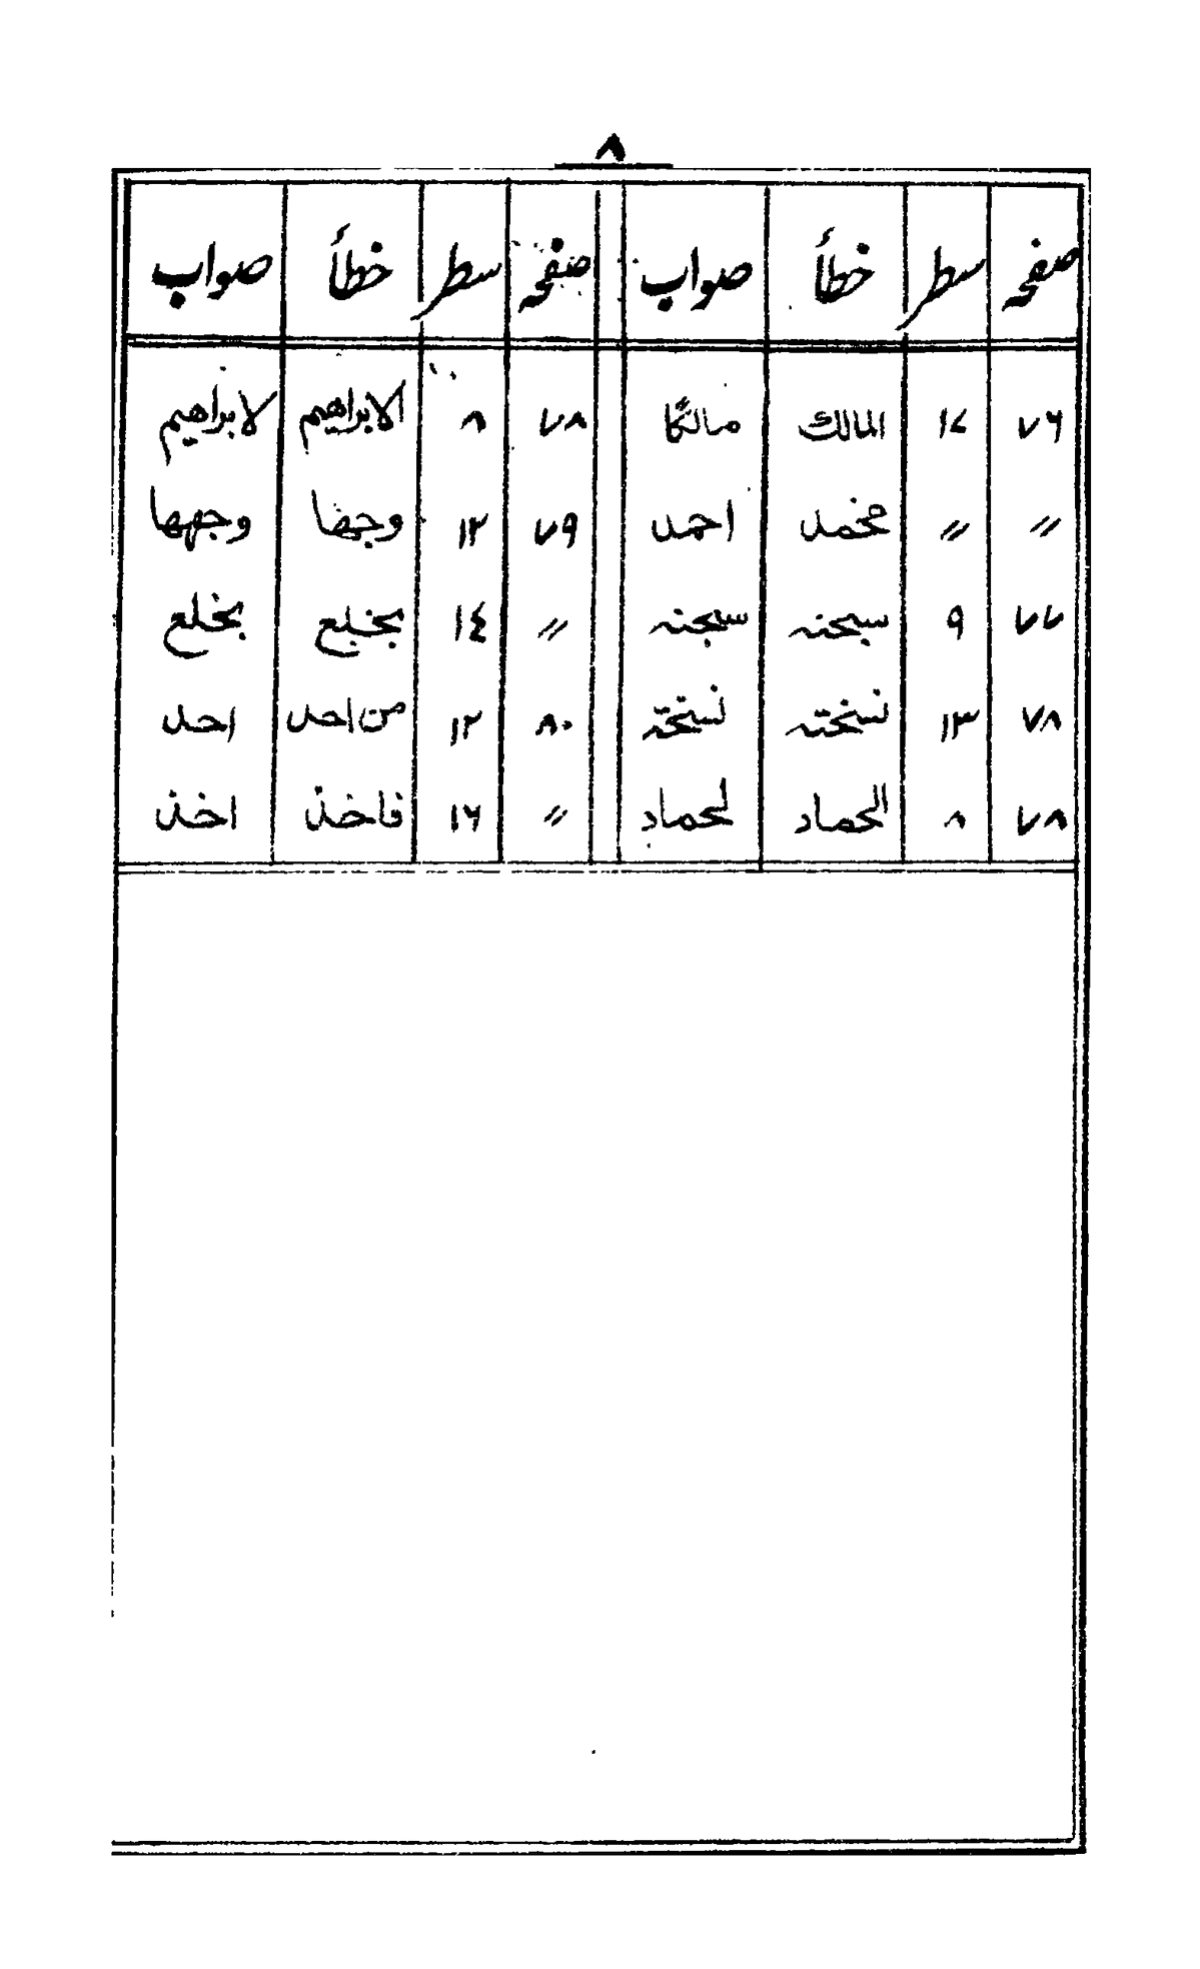 ٨
صفحہ سطر خطأ صواب صفحہ سطر خطأ صواب
٧٦ ١٧ المالك مالكًا ٧٨ ٨ الابراهيم لابراهيم
〃 〃 محمد احمد ٧٩ ١٢ وجها وجهها
٧٧ ٩ سبحنہ سبحنہ 〃 ١٤ بخبلع بخلع
٧٨ ١٣ نسختہ نسختہ ٨٠ ١٢ من احد احد
٧٨ ٨ الحماد لحماد 〃 ١٦ فاخذ اخذ